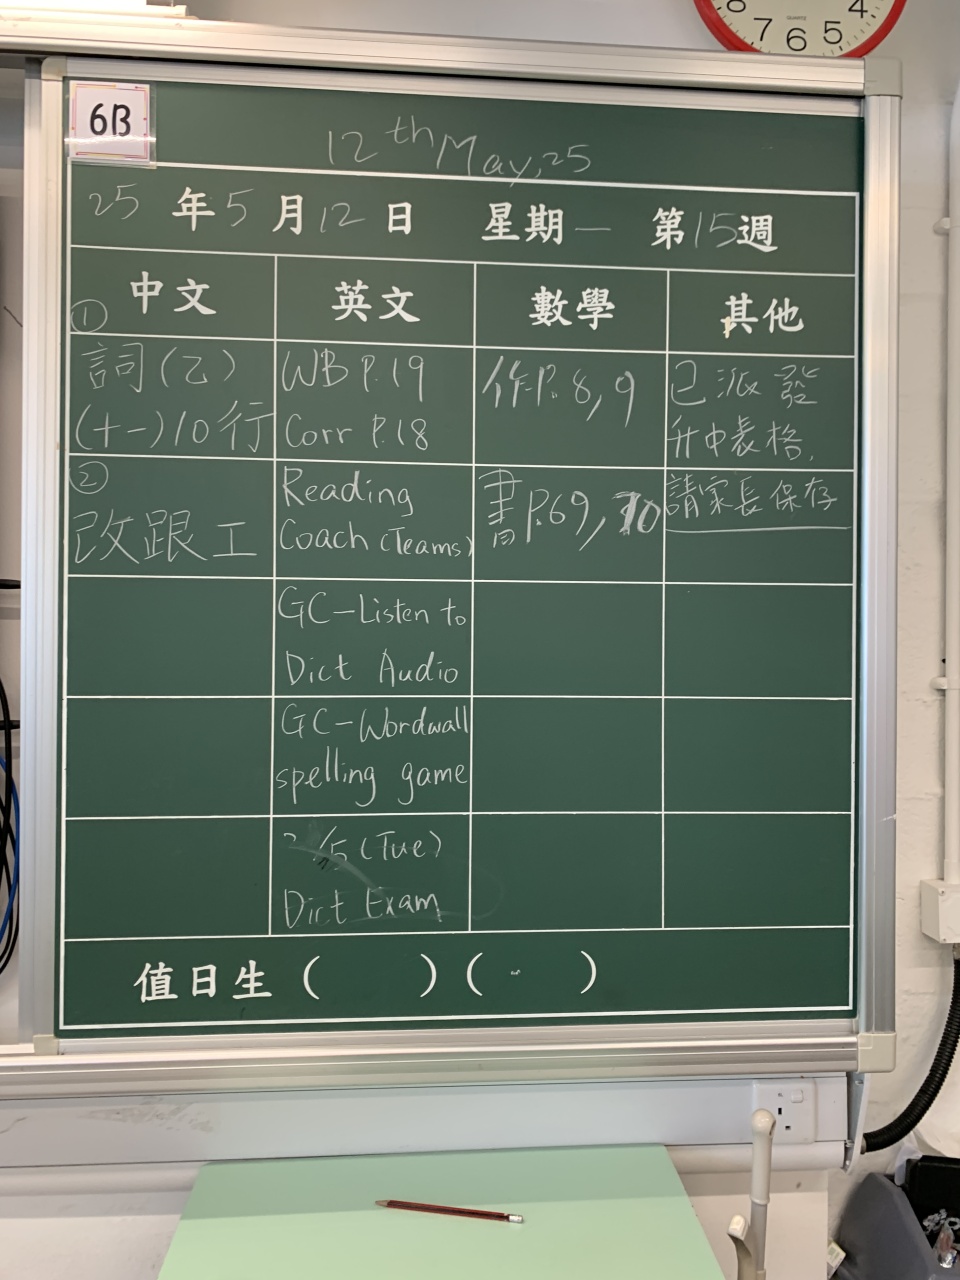 8 7 6 5 4
QUARTZ
6B
12th May, 25
25 年 5 月 12 日 星期一 第 15 週
中文 英文 數學 其他
①
詞(乙)
(十一)10行
②
改跟工
WB P.19
Corr P.18
Reading
Coach (Teams)
GC-Listen to
Dict Audio
GC-Wordwall
spelling game
/5 (Tue)
Dict Exam
作P. 8, 9
書P.69, 70
已派發
升中表格,
請家長保存
值日生 ( ) ( )